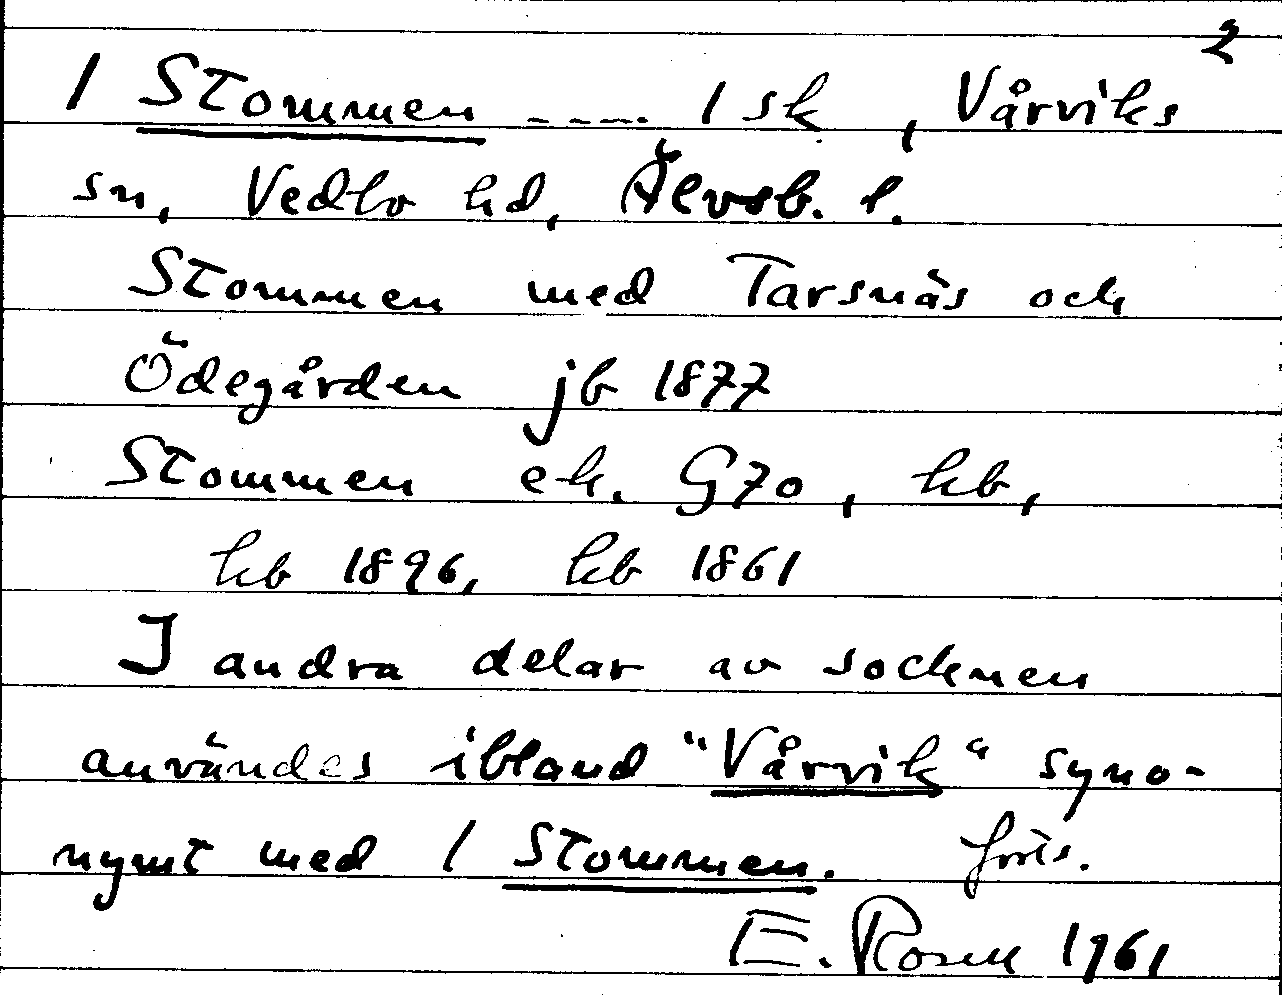 2
/ Stommen ----- / sk, Vårviks
sn, Vedbo hd, Älvsb. l.
Stommen med Tarsnäs och
Ödegården jb 1877
Stommen ek. G70, kb,
hb 1896, hb 1861
I andra delar av socknen
användes ibland "Vårvik" syno-
nymt med / Stommen. forts.
E. Rosell 1961